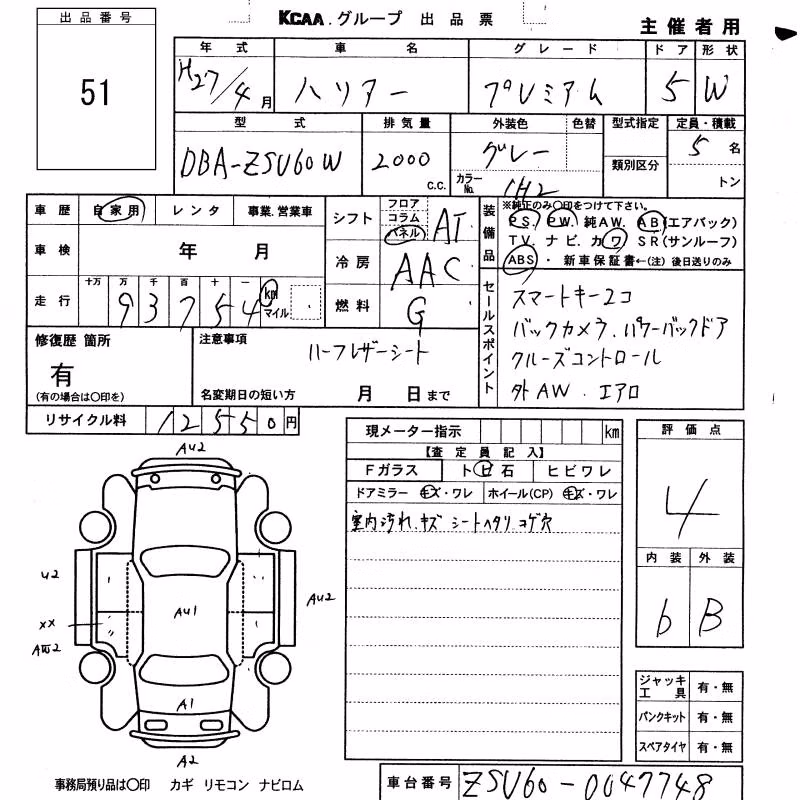 KCAA.グループ 出品票
主催者用
出品番号
51
年式 車名 グレード ドア 形状
H27/4月 ハリアー プレミアム 5 W
型式 排気量 外装色 色替 型式指定 定員・積載
DBA-ZSU60W 2000 C.C. グレー 類別区分 5名
カラーNo. 1H2 トン
車歴 自家用 レンタ 事業.営業車
車検 年 月
走行 十万 万 千 百 十 一
93754 km マイル
シフト フロア コラム パネル AT
冷房 AAC
燃料 G
装備品 ※純正のみ○印をつけて下さい。
PS. PW. 純AW. AB(エアバック)
TV. ナビ. カワ SR(サンルーフ)
ABS・新車保証書←(注)後日送りのみ
セールスポイント
スマートキー2コ
バックカメラ.パワーバックドア
クルーズコントロール
外AW.エアロ
修復歴 箇所
有
(有の場合は○印を)
注意事項
ハーフレザーシート
名変期日の短い方 月 日まで
リサイクル料 12550円
現メーター指示 km
【査定員記入】
Fガラス トビ石 ヒビワレ
ドアミラー キズ・ワレ ホイール(CP) キズ・ワレ
室内汚れ.キズ シートヘタリ コゲ穴
評価点
4
内装 外装
b B
AU2
U2
AU1
AU2
XX
AW2
A1
A2
ジャッキ工具 有・無
パンクキット 有・無
スペアタイヤ 有・無
事務局預り品は○印 カギ リモコン ナビロム
車台番号 ZSU60-0047748